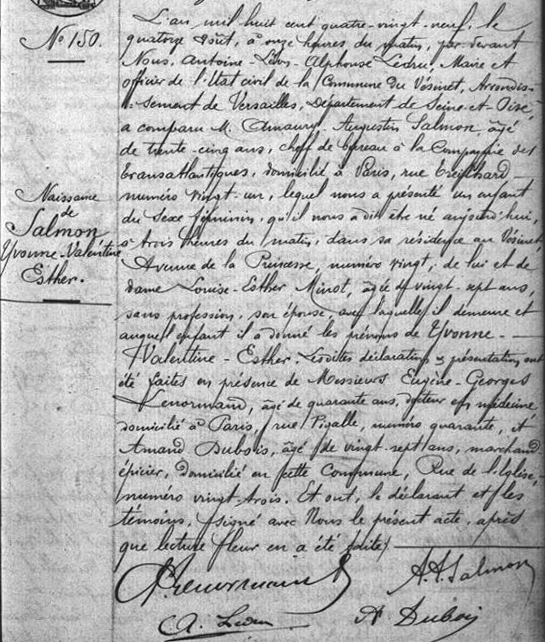 N° 150.
Naissance
de
Salmon
Yvonne-Valentine
Esther.
L'an mil huit cent quatre-vingt-neuf, le
quatorze Août, à onze heures du matin, par devant
Nous, Antoine-Léon-Alphonse Ledru, Maire et
officier de l'Etat civil de la Commune du Vésinet, Arrondis-
sement de Versailles, Département de Seine-et-Oise,
a comparu M. Amaury-Augustin Salmon, âgé
de trente-cinq ans, chef de bureau à la Compagnie des
transatlantiques, domicilié à Paris, rue Treilhard
numéro vingt-un, lequel nous a présenté un enfant
du Sexe féminin, qu'il nous a dit être né aujourd'hui,
à trois heures du matin, dans sa résidence au Vésinet
Avenue de la Princesse, numéro vingt, de lui et de
dame Louise-Esther Minot, âgée de vingt-sept ans,
sans profession, son épouse, avec laquelle il demeure et
auquel enfant il a donné les prénoms de Yvonne-
Valentine-Esther. Lesdites déclaration et présentation ont
été faites en présence de Messieurs Eugène-Georges
Lenormand, âgé de quarante ans, docteur en médecine,
domicilié à Paris, rue Pigalle, numéro quarante, et
Amand Dubois, âgé de vingt-sept ans, marchand
épicier, domicilié en cette Commune, Rue de l'Eglise,
numéro vingt-trois. Et ont, le déclarant et les
témoins, signé avec Nous le présent acte, après
que lecture leur en a été faite.
Lenormand
A. A. Salmon
A. Ledru
A Dubois